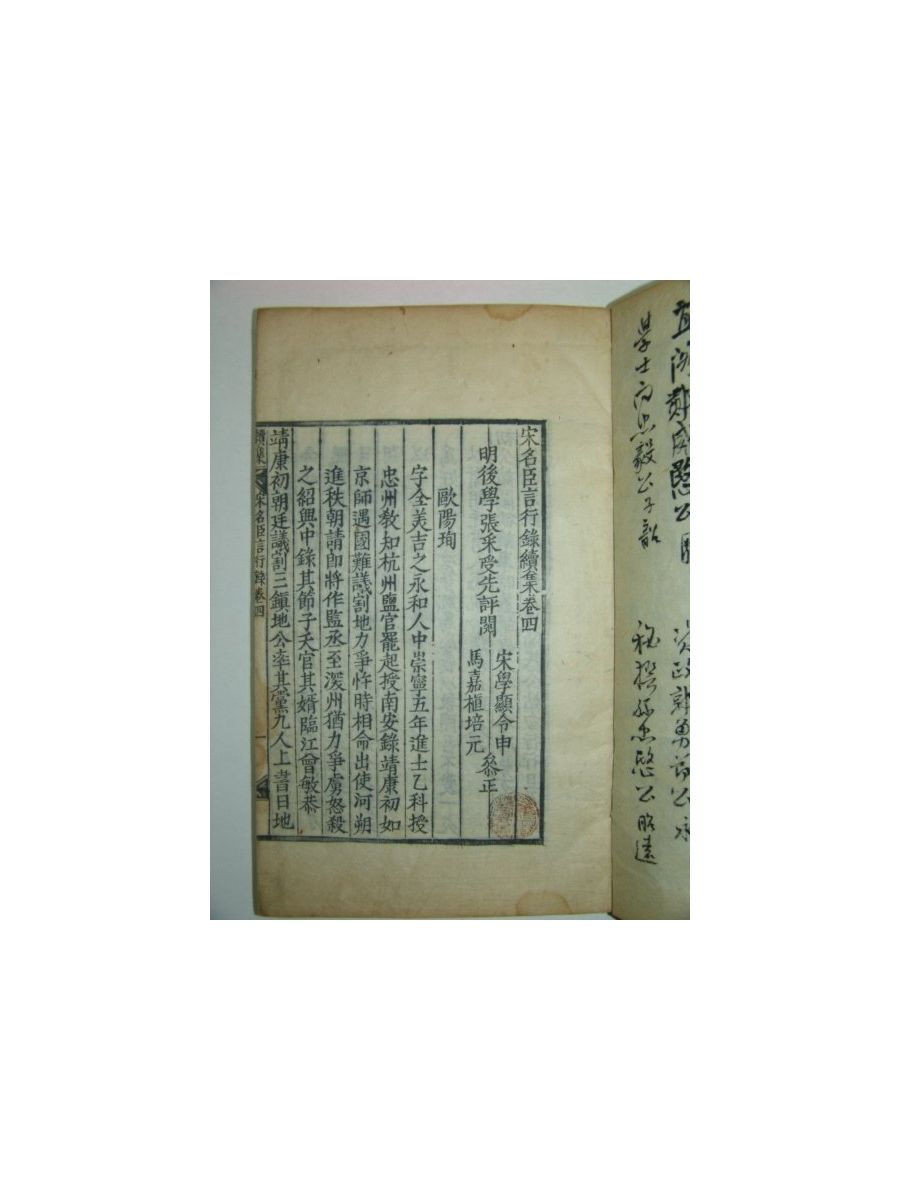 學士向忠毅公子韶
宋名臣言行錄續集卷四
明後學張采受先評閱
宋學顯令申
馬嘉植培元
叅正
歐陽珣
字全美吉之永和人中崇寧五年進士乙科授
忠州教知杭州鹽官罷起授南安錄靖康初如
京師遇國難議割地力爭忤時相命出使河朔
進秩朝請郎將作監丞至深州猶力爭虜怒殺
之紹興中錄其節子天官其婿臨江曾敏恭
靖康初朝廷議割三鎮地公率其黨九人上書曰地
續集
宋名臣言行錄卷四
一